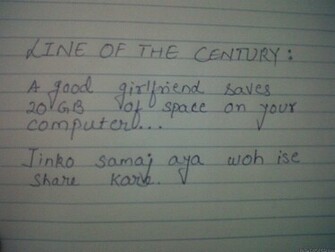 LINE OF THE CENTURY:
A good girlfriend saves
20 GB of space on your
computer...
Jinko samaj aya woh ise
share kare.